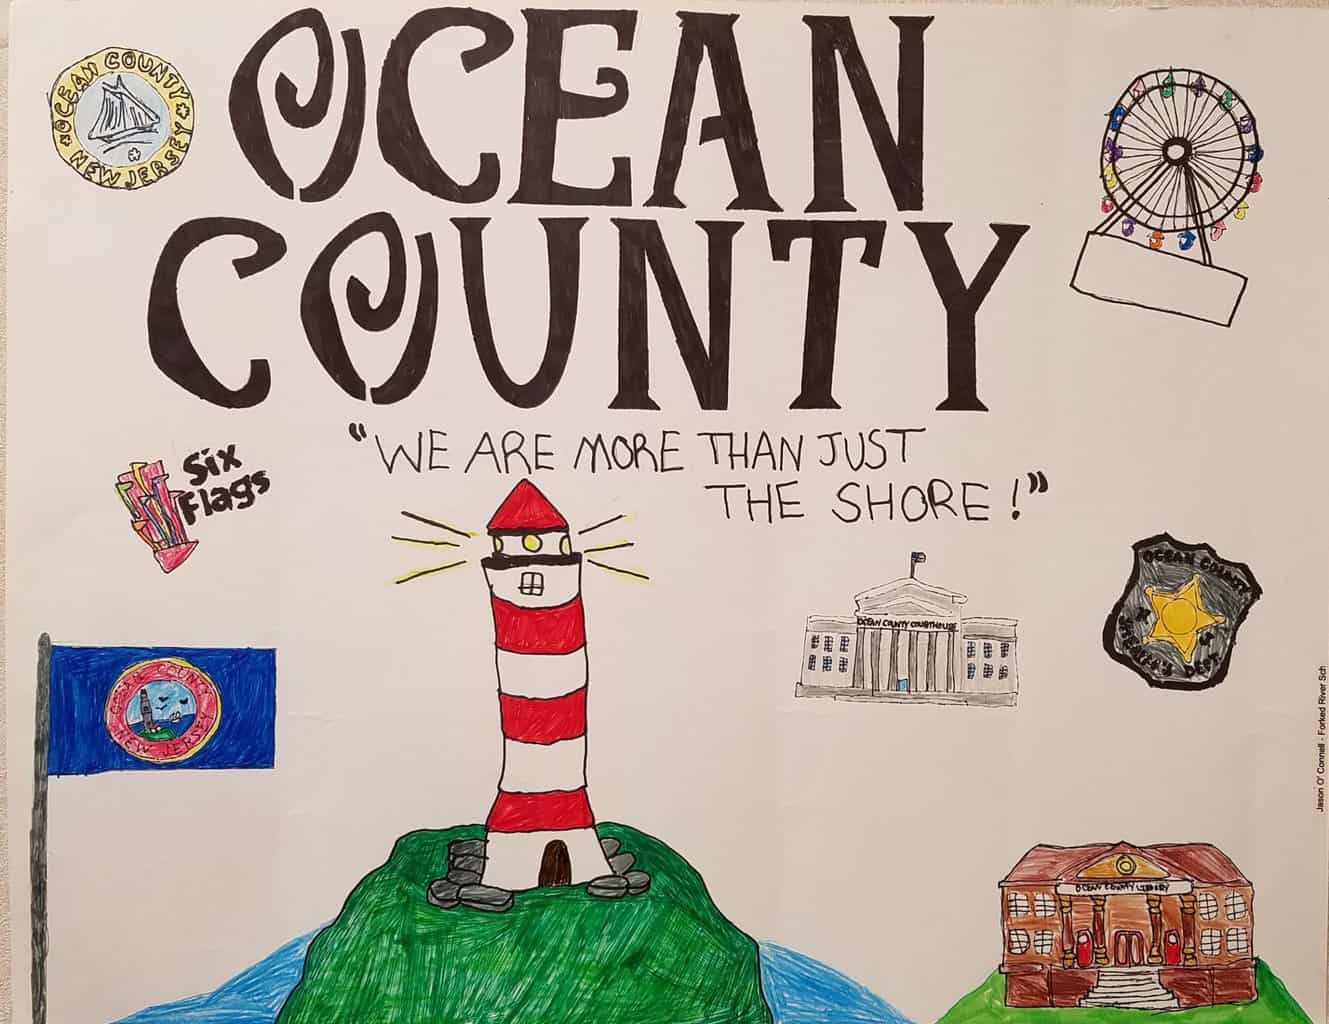 OCEAN COUNTY
NEW JERSEY
OCEAN
COUNTY
"WE ARE MORE THAN JUST
THE SHORE!"
Six
Flags
OCEAN COUNTY COURTHOUSE
OCEAN COUNTY
SHERIFF'S DEPT.
OCEAN COUNTY
NEW JERSEY
OCEAN COUNTY LIBRARY
Jason O' Connell - Forked River Sch